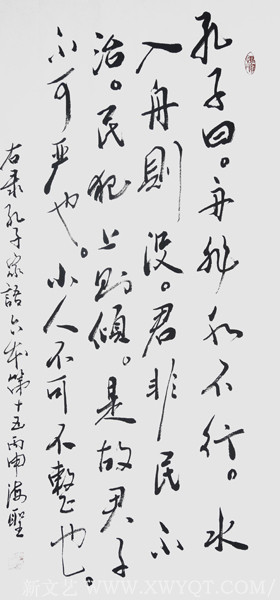 孔子曰。舟非水不行。水
入舟則没。君非民不
治。民犯上則傾。是故君子
不可严也。小人不可不整也。
右录孔子家語六本第十五丙申海聖
新文艺 WWW.XWYQT.COM/